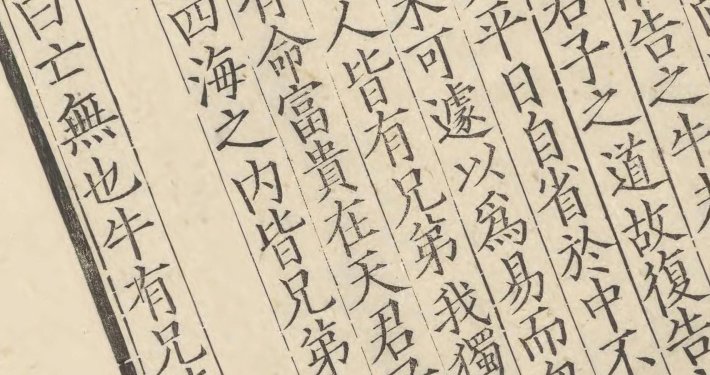 告之牛
君子之道故復告
平日自省於中不
未可遽以爲易而
人皆有兄弟我獨
有命富貴在天君子
四海之内皆兄弟
曰亡無也牛有兄